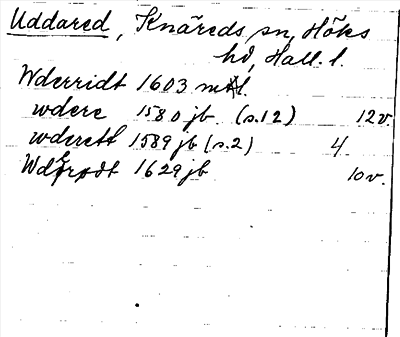 Uddared, Knäreds sn, Höks
hd, Hall. l.
Wderridt 1603 mtl.
wdere 1580 jb (s.12) 12 v.
wderett 1589 jb (s.2) 4
Wderødt 1629 jb 10 v.